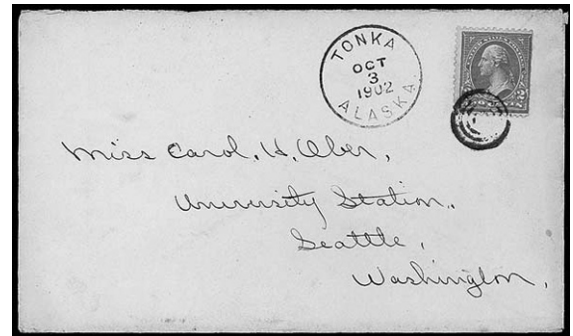 TONKA
OCT
3
1902
ALASKA.
2 2
Miss Carol. H. Ober,
University Station.
Seattle,
Washington,